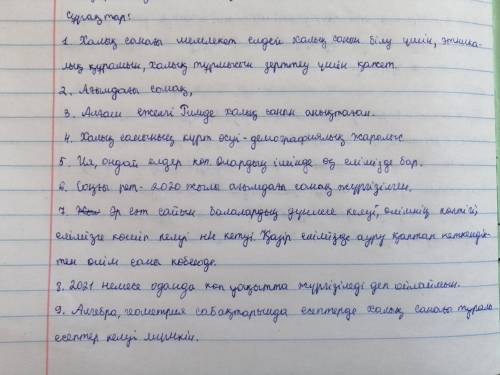 Сұрақтар:
1. Халық санағы мемлекет елдей халық санын білу үшін, этника-
лық құрамын, халық тұрмысын зерттеу үшін қажет.
2. Ағымдағы санақ,
3. Алғаш ежелгі Римде халық санын анықтаған.
4. Халық санының күрт өсуі - демографиялық жарылыс.
5. Ия, ондай елдер көп. Олардың ішінде өз елімізде бар.
6. Соңғы рет - 2020 жылы ағымдағы санақ жүргізілген.
7. Әр сәт сайын балалардың дүниеге келуі, өлімнің көптігі,
елімізге көшіп келуі не кетуі. Қазір елімізде ауру қаптап кеткендік-
тен өлім саны көбеюде.
8. 2021 немесе одан да көп уақытта жүргізіледі деп ойлаймын.
9. Алгебра, геометрия сабақтарында есептерде халық санағы туралы
есептер келуі мүмкін.